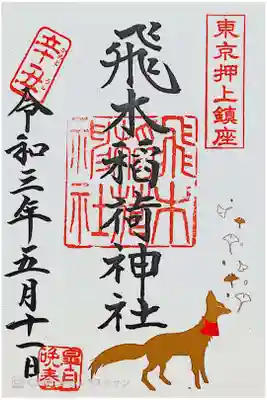 東京押上鎮座
飛木稲荷神社
飛木稲荷神社
辛丑
令和三年五月十一日